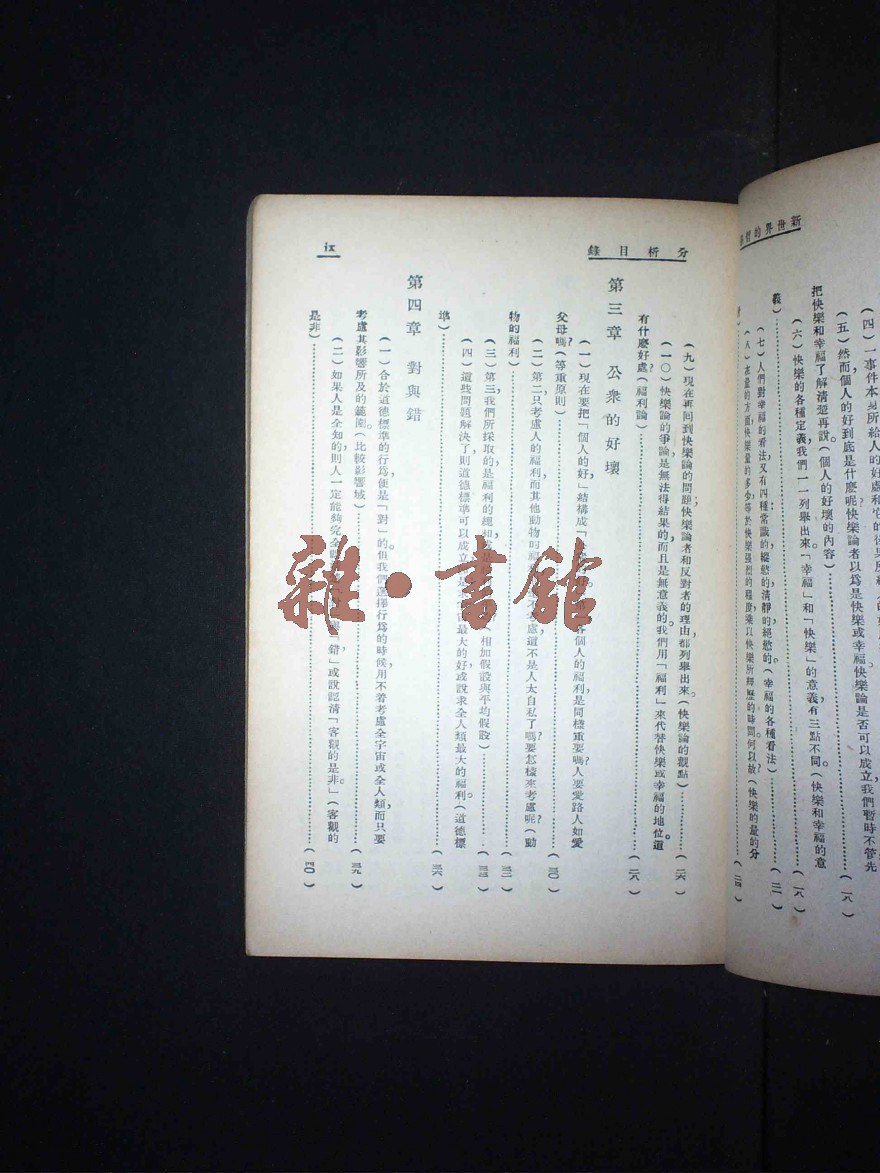 新世界的
(四)一事件本身所給人的好處和它的
(五)然而,個人的好到底是什麽呢?快樂論者以爲是快樂或幸福快樂論是否可以成立,我們暫時不管先
把快樂和幸福了解清楚再說(個人的好壞的內容)(一八)
(六)快樂的各種定義,我們一一列舉出來。「幸福」和「快樂」的意義有三點不同(快樂和幸福的意
義)(一八)
(七)人們對幸福的看法又有四種:常識的,縱慾的,清靜的,絕慾的。(幸福的各種看法)(二一)
(八)在量的方面,快樂量的多少,等於快樂强烈的程度,乘以快樂所經歷的時間。何以故?(快樂的量的分
(二四)
分析目錄
ix
(九)現在再回到快樂論的問題,快樂論者和反對者的理由都列舉出來。(快樂論的觀點)(二六)
(一〇)快樂論的爭論是無法得結果的,而且是無意義的。我們用「福利」來代替快樂或幸福的地位。這
有什麽好處?(福利論)(二八)
第三章 公衆的好壞
(一)現在要把「個人的好」結構成「 」。第一,各個人的福利是同樣重要嗎?人要愛路人如愛
父母嗎?(等重原則)(三〇)
(二)第二,只考慮人的福利而其他動物的福利 考慮,這不是人太自私了嗎?要怎樣來考慮呢?(動
物的福利)(三二)
(三)第三,我們所採取的是福利的總和 相加假設與平均假設)(三三)
(四)這些問題解決了,則道德標準可以成立 最大的好,或說求全人類最大的福利。(道德標
準)(三六)
第四章 對與錯
(一)合於道德標準的行爲,便是「對」的。但我們選擇行爲的時候,用不着考慮全宇宙或全人類,而只要
考慮其影響所及的範圍。(比較影響域)(三九)
(二)如果人是全知的,則人一定能夠完全 「錯」,或說認清「客觀的是非」。(客觀的
是非)(四〇)
雜·書館